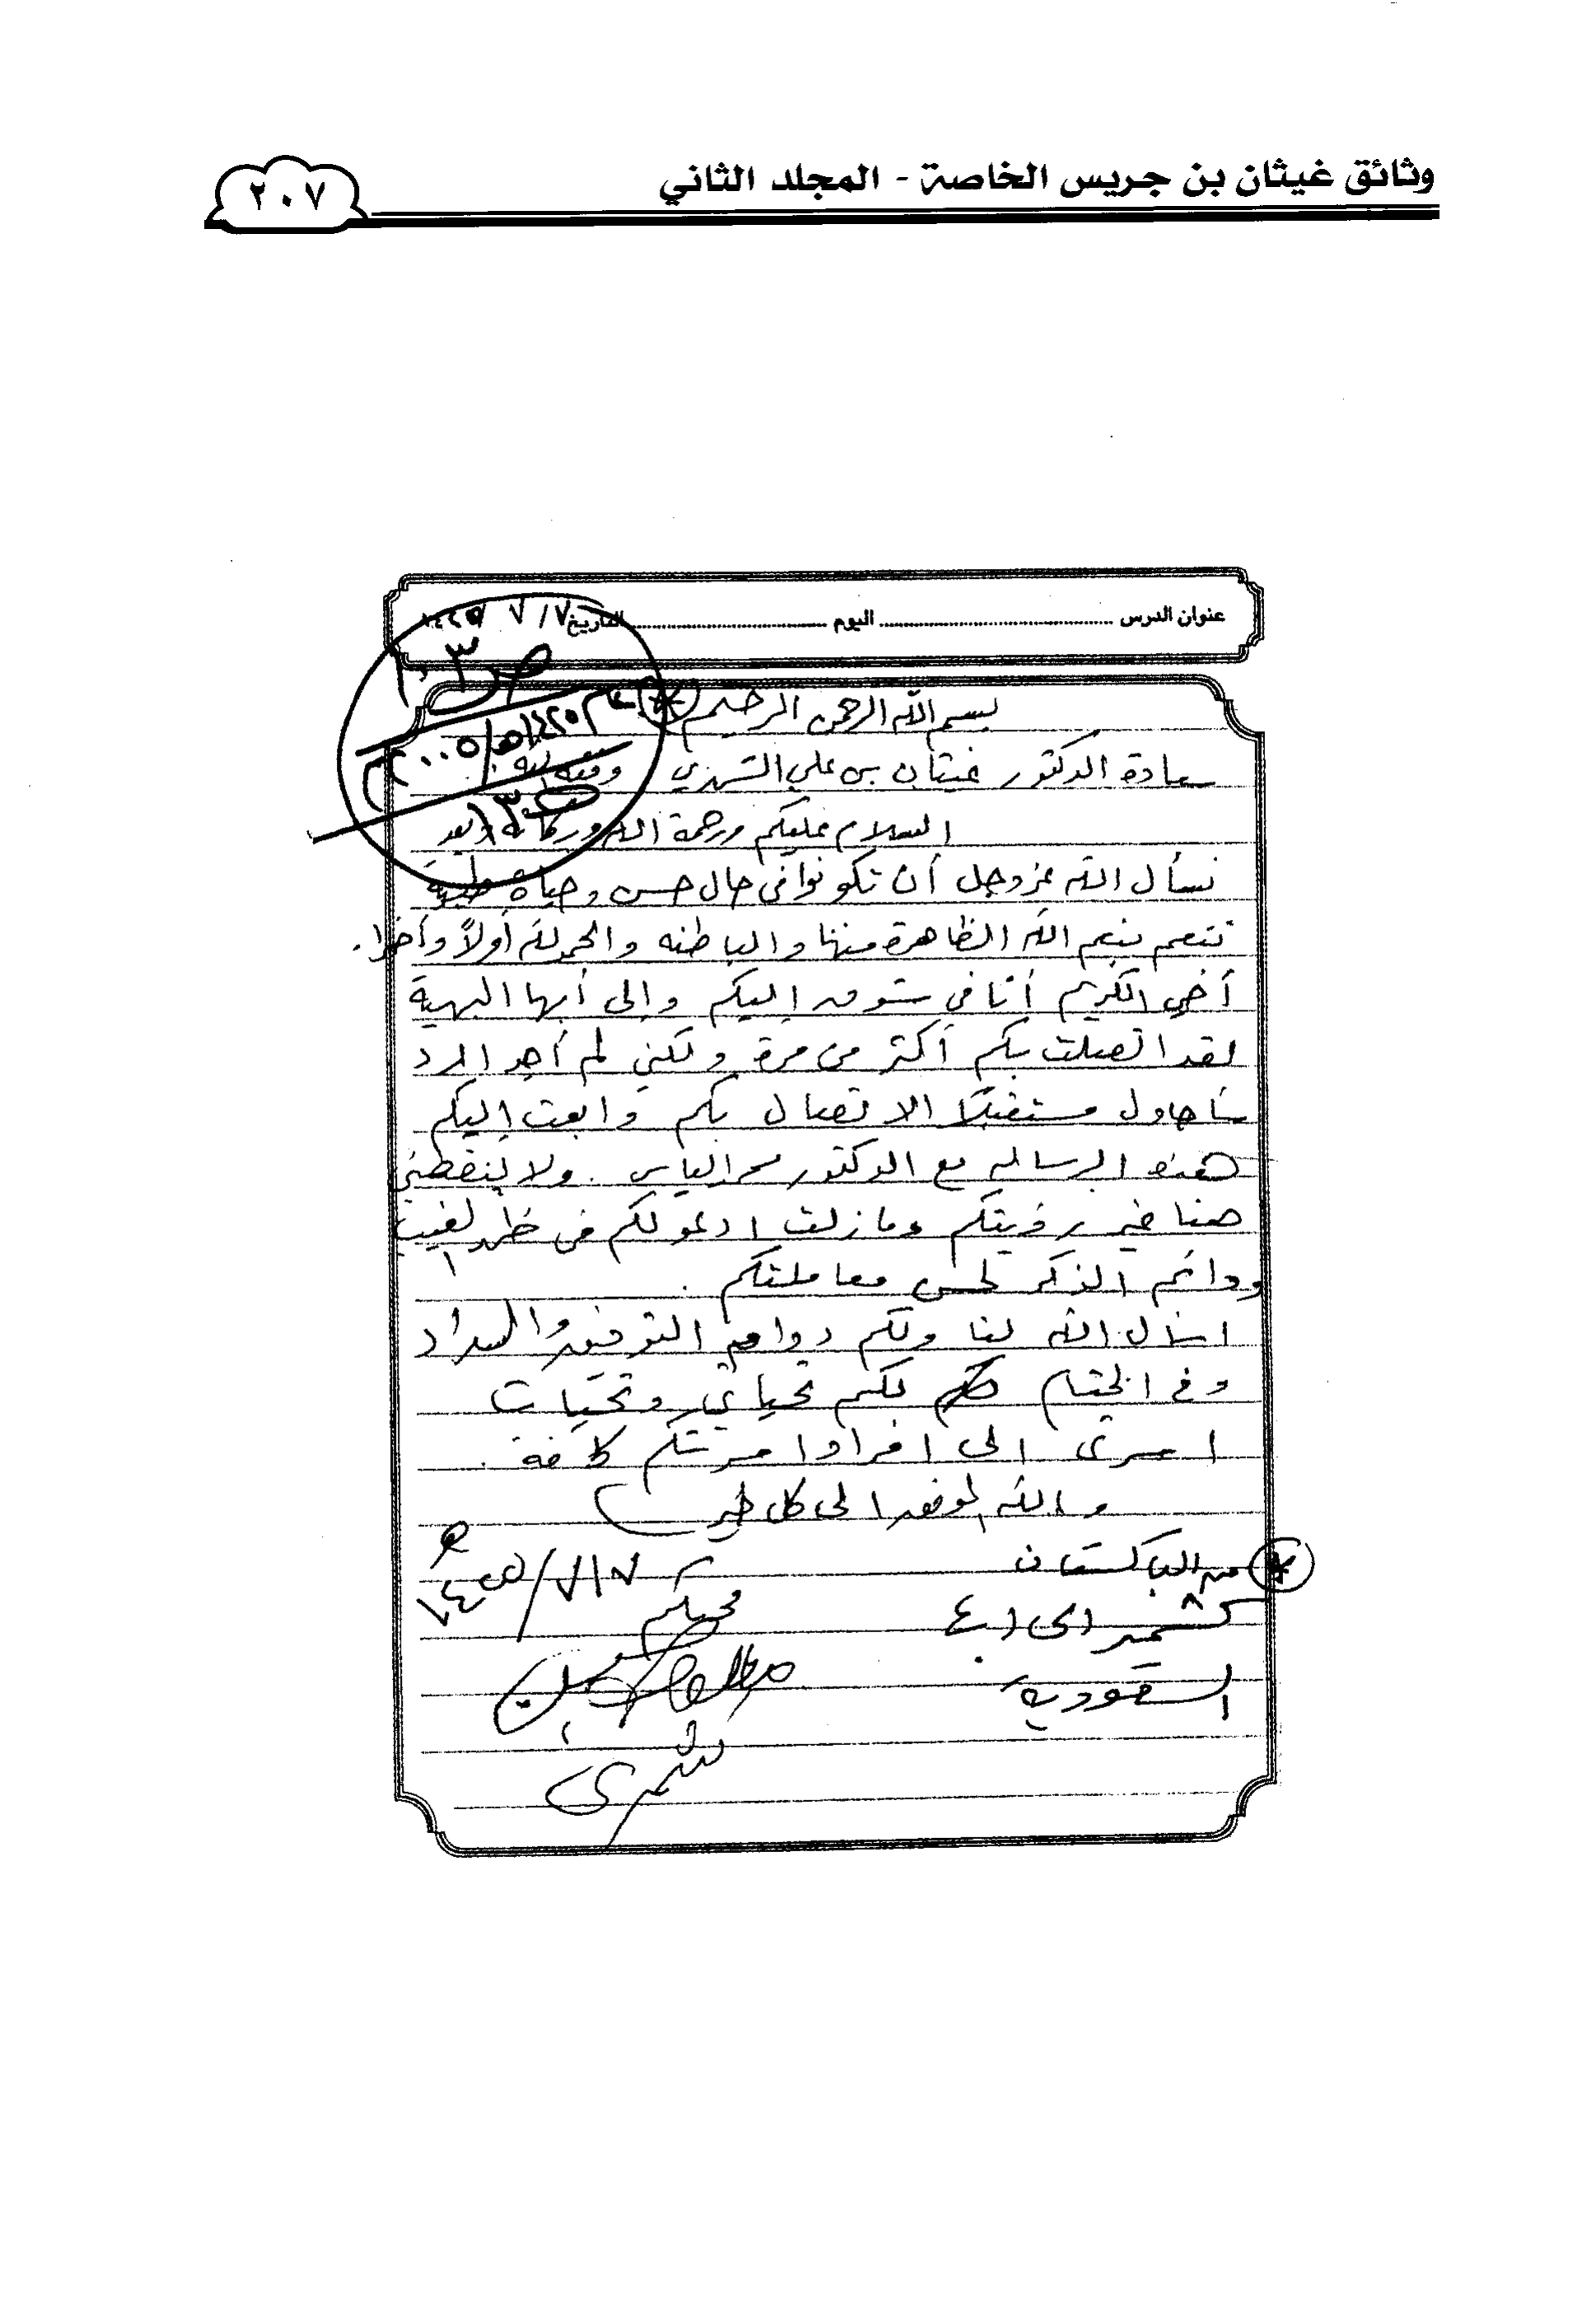 وثائق غيثان بن جريس الخاصة - المجلد الثاني
٢٠٧
عنوان الدرس اليوم التاريخ ٧/٧
عام ١٤٢٥هـ/٢٠٠٥م
بسم الله الرحمن الرحيم
سعادة الدكتور غيثان بن علي الشهري وفقه الله
السلام عليكم ورحمة الله وبركاته وبعد
نسأل الله عز وجل أن تكونوا في حال حسن وحياة طيبة
تنعم بنعم الله الظاهرة منها والباطنه والحمد لله أولاً وأخرا.
أخي الكريم أنا في شوق إليكم وإلى أبها البهية
لقد اتصلت بكم أكثر من مرة ولكني لم أجد الرد
سأحاول مستقبلاً الاتصال بكم وابعث إليكم
هذه الرساله مع الدكتور محمد الياس. ولا ينقصني
هنا غير رؤيتكم وما زلت ادعو لكم في ظهر الغيب
ودائم الذكر لحسن معاملتكم.
اسأل الله لنا ولكم دوام التوفيق والسداد
وفي الختام لكم تحياتي وتحيات
اسرتي الى افراد اسرتكم كافة.
والله الموفق الى كل خير
من الباكستان
٧/٧/١٤٢٥هـ
محبكم
كشمير الى ابها
السعودية